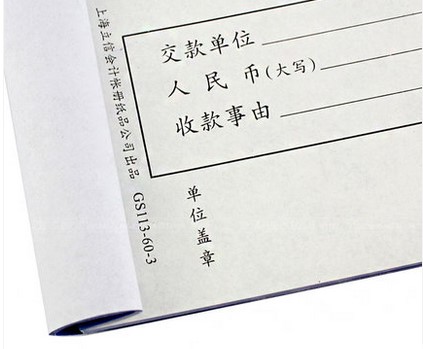 交款单位
人民币(大写)
收款事由
单位盖章
上海立信会计账册纸品公司出品 GS113-60-3